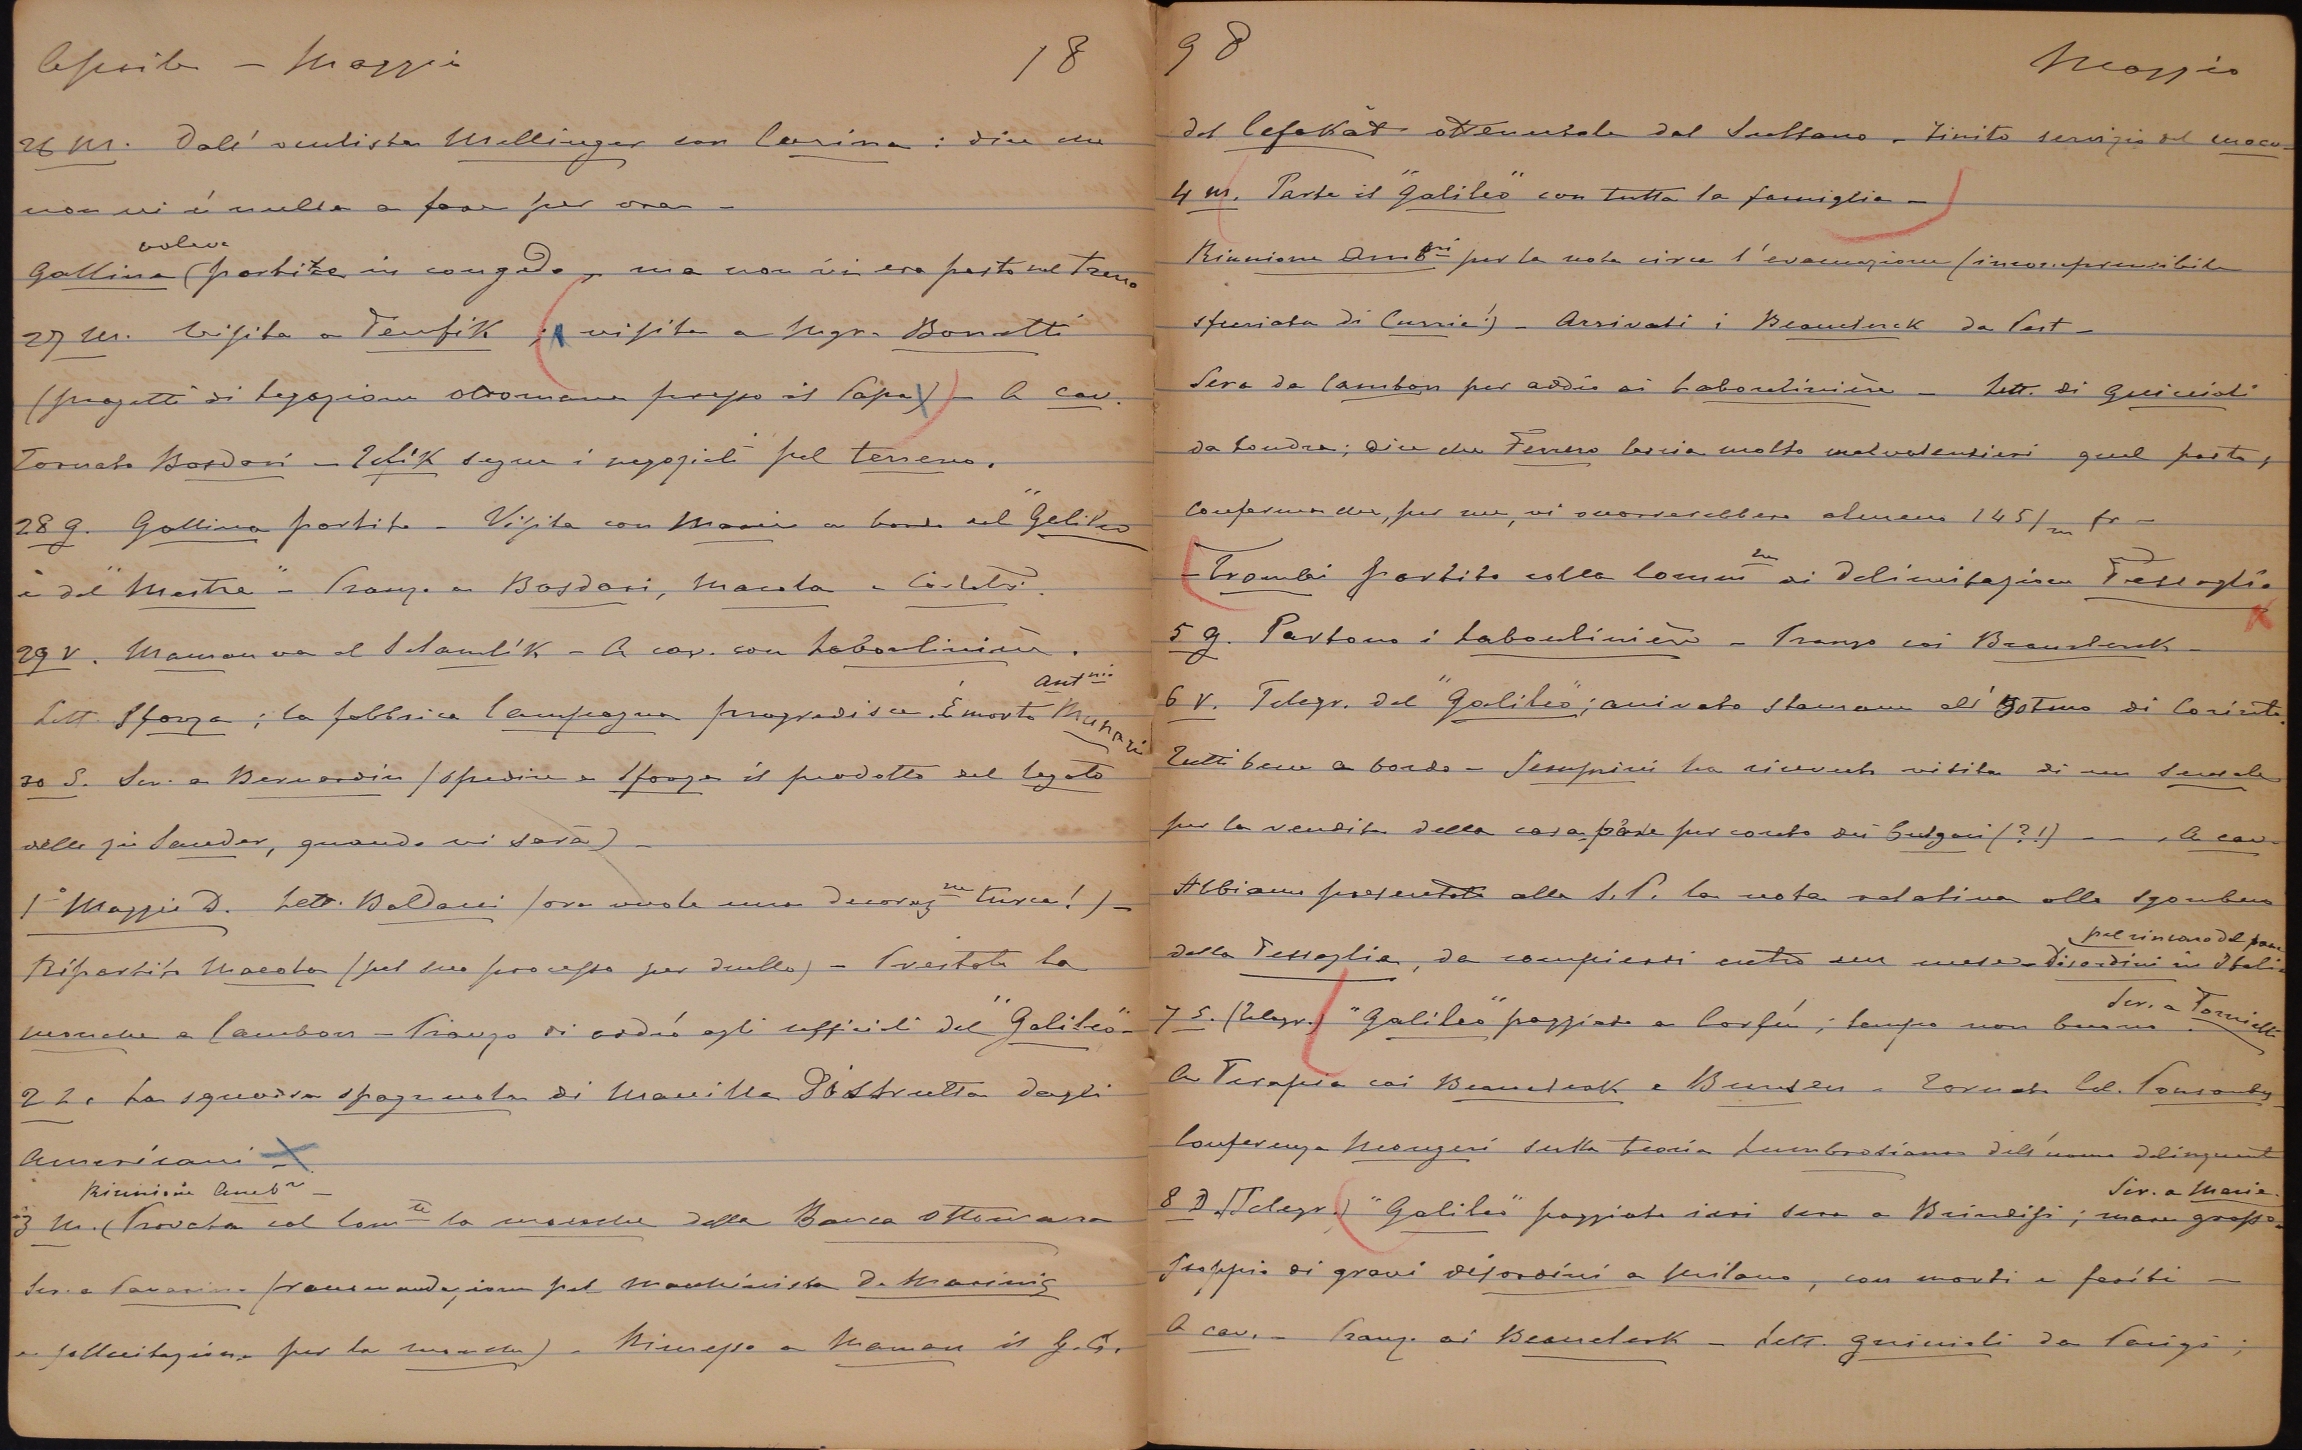 Aprile – Maggio 18
26 M. Dall'oculista Mellinger con Carina: dice che
non vi è nulla a fare per ora –
voleva
Gallina (partire in congedo, ma non vi era posto nel treno
27 M. Visita a Tewfik; visita a Mgr. Bonetti
(progetti di legazione ottomana presso il Papa) – A cav.
Tornato Bosdari – Refik segue i negoziati pel terreno.
28 G. Gallina partito – Visita con Marie a bordo del "Galileo
e del "Mestre" – Pranzo a Bosdari, Macola e
29 V. Maman va al Selamlik – A cav. con Laboulinière.
Antnio
Lett. Sforza; la fabbrica Campagna progredisce. È morto Munari
30 S. Scr. a Bernardin (spedire a Sforza il prodotto del legato
delle zie Sauder, quando vi sarà) –
1° Maggio D. Lett. Baldacci (ora vuole una decorazne turca!) –
Ripartito Macola (pel suo processo per duello) – Prestata la
mouche a Cambon – Pranzo di addio agli ufficiali del "Galileo" –
2 L. La squadra spagnuola di Manilla distrutta dagli
Americani –
Riunione Ambri –
3 M. (Provata col Comte la mouche della Banca Ottomana
Scr. a (raccomandazione pel macchinista De Marinis
e sollecitazione per la mouche) – Rimesso a Maman il G. C.
98 Maggio
del Cefakat ottenutole dal Sultano. Finito servizio del
4 M. Parte il "Galileo" con tutta la famiglia –
Riunione Ambri per la nota circa l'evacuazione (incomprensibile
sfuriata di Currie!) – Arrivati i Beauclerk da Pest –
Sera da Cambon per addio ai Laboulinière – Lett. di Guiccioli
da Londra; dice che Ferrero lascia molto malvolentieri quel posto,
conferma che, per me, vi occorrerebbero almeno 145/m fr –
– Trombi partito colla Commne di Delimitazione Tessaglia
5 G. Partono i Laboulinière – Pranzo coi Beauclerk –
6 V. Telegr. del "Galileo"; arrivato stamane all'Istmo di Corinto.
Tutti bene a bordo – Semprini ha ricevuto visita di un sensale
per la vendita della casa Pàre per conto dei Bulgari (?!) – – A cav.
Abbiamo presentato alla S. P. la nota relativa allo sgombero
pel rincaro del pane
della Tessaglia, da compiersi entro un mese – Disordini in Italia
Scr. a Tornielli
7 S. (Telegr.) "Galileo" poggiato a Corfù; tempo non buono.
A Terapia coi Beauclerk e Bunsen. Tornato Col. Ponsonby
Conferenza Mongeri sulla teoria Lumbrosiana dell'uomo delinquente
Scr. a Marie.
8 D. (Telegr.) "Galileo" poggiato ieri sera a Brindisi; mare grosso.
Scoppio di gravi disordini a Milano, con morti e feriti –
A cav. – Pranz. ai Beauclerk – Lett. Guiccioli da Parigi;